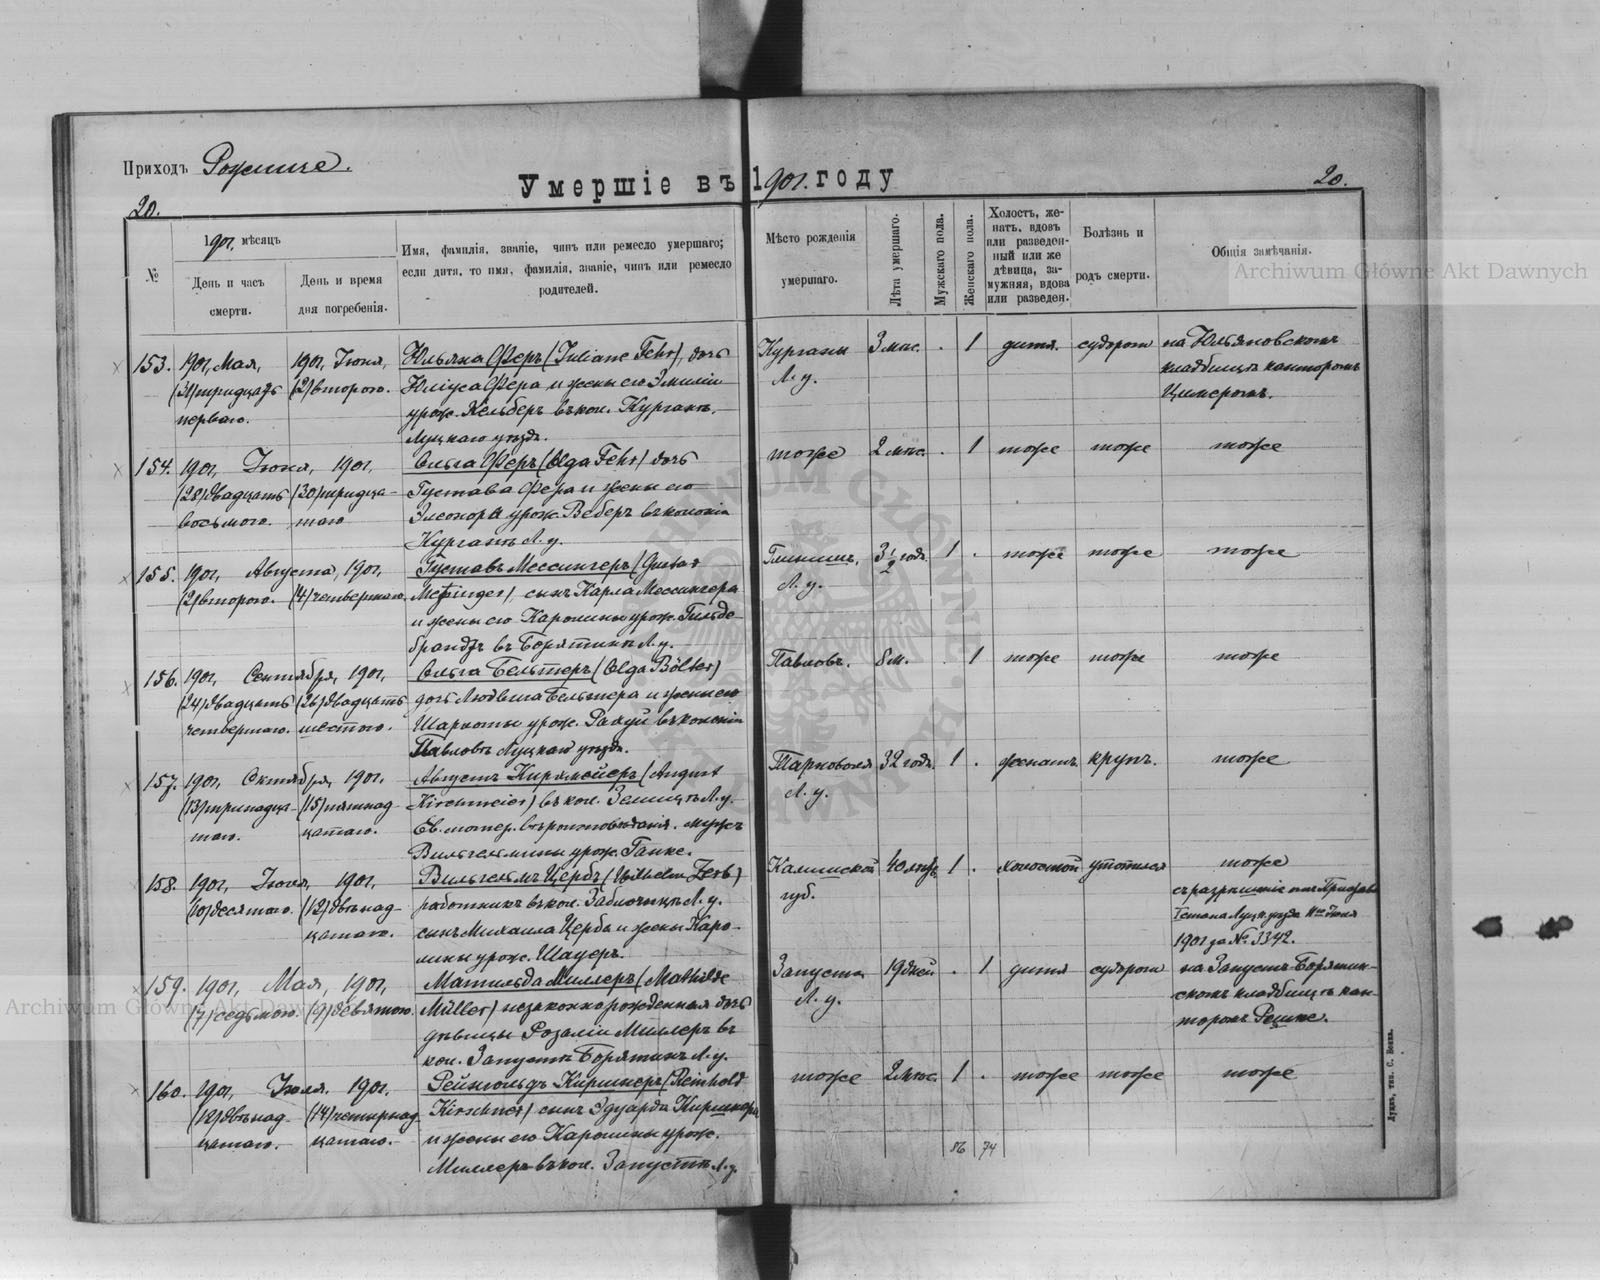 Приходъ Рожище.
Умершіе въ 1901. году
20.
20.
№
1901. мѣсяцъ
День и часъ смерти.
День и время дня погребенія.
Имя, фамилія, званіе, чинъ или ремесло умершаго; если дитя, то имя, фамилія, званіе, чинъ или ремесло родителей.
Мѣсто рожденія умершаго.
Лѣта умершаго.
Мужскаго пола.
Женскаго пола.
Холостъ, женатъ, вдовъ или разведенный или же дѣвица, замужняя, вдова или разведен.
Болѣзнь и родъ смерти.
Общія замѣчанія.
Archiwum Główne Akt Dawnych
153. 1901, Мая, 1901, Іюня, Юльяна Феръ (Juliane Fehr), дочь Курганы 3 мѣс. . 1 дитя. судороги на Юльяновскомъ
(31) тридцать (2) второго. Юліуса Фера и жены его Эмиліи Л. у. кладбищѣ канторомъ
перваго. урож. Кельберъ въ кол. Курганъ, Цимеромъ.
Луцкаго уѣзда.
154. 1901, Іюня, 1901, Ольга Феръ (Olga Fehr) дочь тоже 2 мѣс. . 1 тоже тоже тоже
(28) двадцать (30) тридца- Густава Фера и жены его
восьмого. таго Элеоноры урож. Веберъ въ колоніи
Курганъ Л. у.
155. 1901, Августа, 1901, Густавъ Мессингеръ (Gustav 3 1/2 года. 1 . тоже тоже тоже
(2) второго. (4) четвертаго. Meßinger), сынъ Карла Мессингера Л. у.
и жены его Каролины урож. Гильде-
брандъ въ Борятинѣ Л. у.
156. 1901, Сентября, 1901, Ольга Бельтеръ (Olga Bölter) Павловъ. 8 м. . 1 тоже тоже тоже
(24) двадцать (26) двадцать дочь Людвига Бельтера и жены его
четвертаго. шестого. Шарлоты урож. въ колоніи
Павловъ Луцкаго уѣзда.
157. 1901, Октября, 1901, Августъ Кирхмейеръ (August Тарноволя 32 года. 1 . женатъ. крупъ. тоже
(13) тринадца- (15) пятнад- Kirchmeier) въ кол. Л. у. Л. у.
таго. цатаго. Ев. лютер. вѣроисповѣданія. мужъ
Вильгельмины урож. Ганке.
158. 1901, Іюля, 1901, Вильгельмъ Цербъ (Wilhelm Zerb) Калишской 40 лѣтъ 1 . холостой утопился тоже
(10) десятаго. (12) двѣнад- работникъ въ кол. Л. у. губ. съ разрѣшенія отъ
цатаго. сынъ Михаила Церба и жены Каро- Луцк. уѣзда Іюля
лины урож. Шауеръ. 1901 за № 3342.
159. 1901, Мая, 1901, Матильда Миллеръ (Mathilde Запуста 19 дней. . 1 дитя судороги на Запустъ-Борятин-
(7) седьмого. (9) девятого. Müller) незаконнорожденная дочь Л. у. скомъ кладбищѣ кан-
дѣвицы Розаліи Миллеръ въ торомъ Решке.
кол. Запустъ Борятинъ Л. у.
160. 1901, Іюля, 1901, Рейнгольдъ Киршнеръ (Reinhold тоже 2 мѣс. 1 . тоже тоже тоже
(12) двѣнад- (14) четырнад- Kirschner) сынъ Эдуарда Киршнера
цатаго. цатаго. и жены его Каролины урож.
Миллеръ въ кол. Запустъ Л. у.
86 74
Луцкъ, тип. С. Бенъ.
Archiwum Główne Akt Dawnych
ARCHIWUM GŁÓWNE AKT DAWNYCH